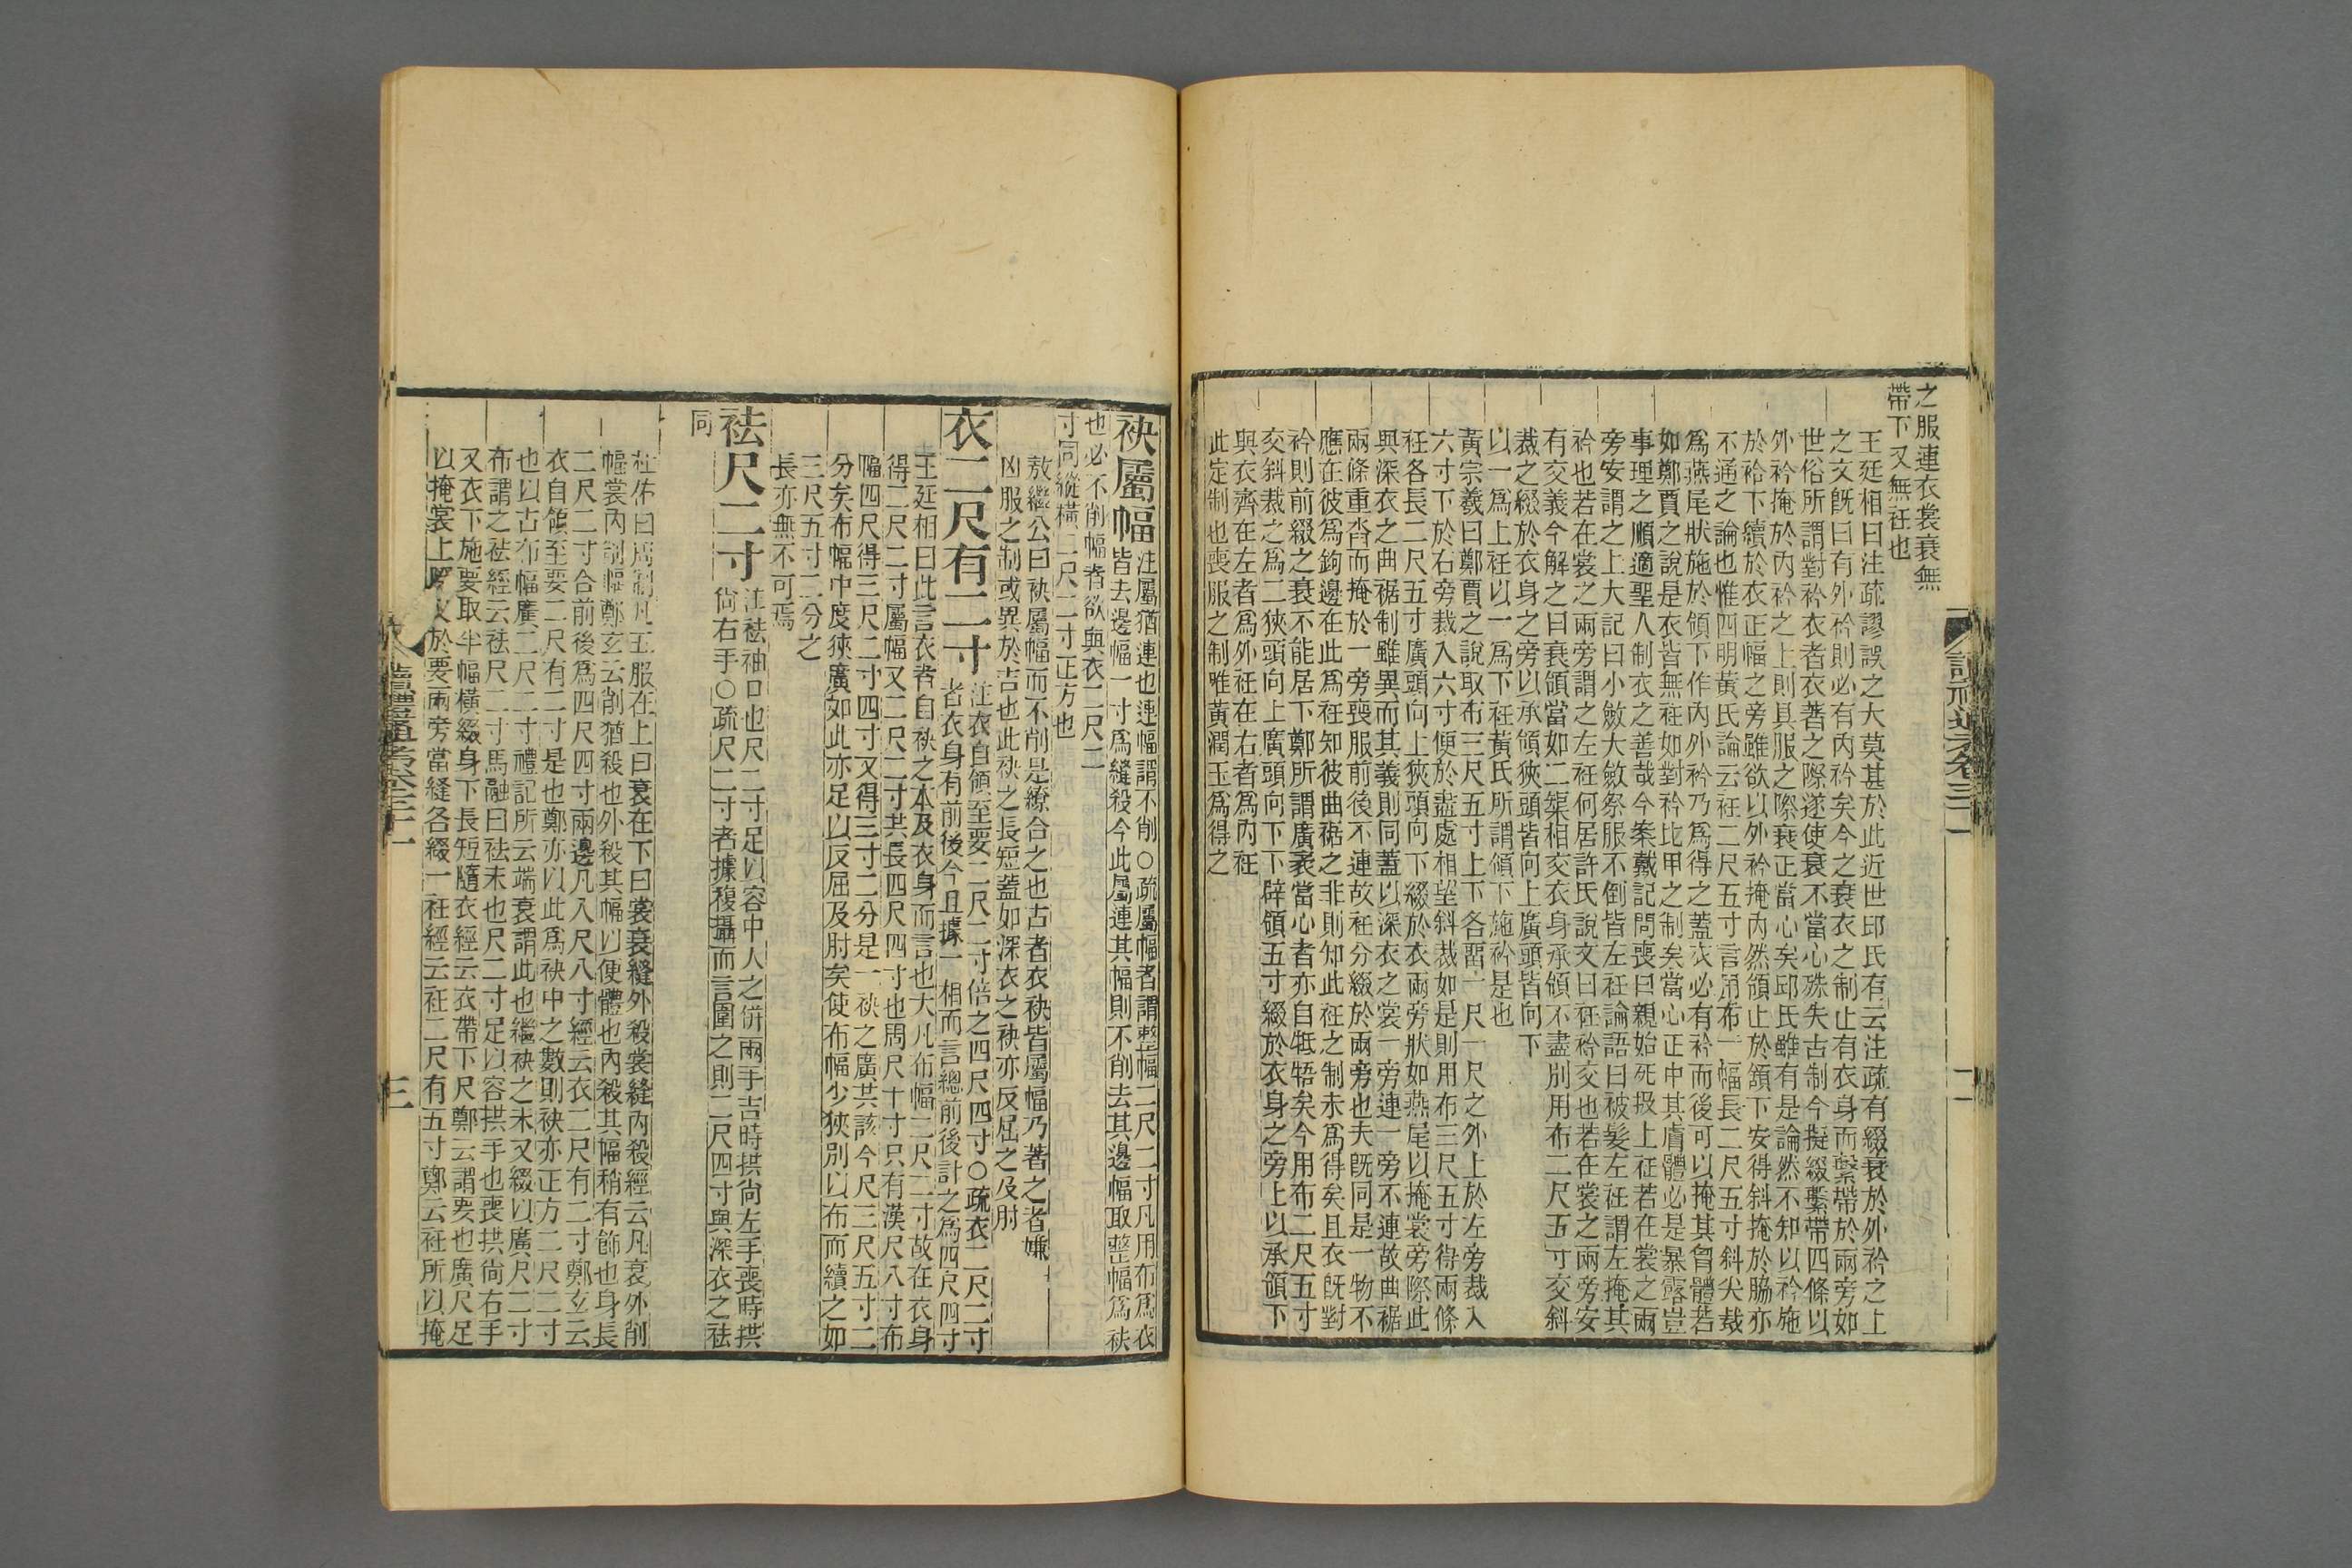 之服連衣裳衰無
帶下又無衽也
王廷相曰注疏謬誤之大莫甚於此近世邱氏有云注疏有綴衰於外衿之上
之文旣曰有外衿則必有內衿矣今之衰衣之制止有衣身而繫帶於兩旁如
世俗所謂對衿衣者衣著之際遂使衰不當心殊失古制今擬綴繫帶四條以
外衿掩於內衿之上則具服之際衰正當心矣邱氏雖有是論然不知以衿施
於袷下續於衣正幅之旁雖欲以外衿掩內然領止於頷下安得斜掩於脇亦
不通之論也惟四明黃氏論云衽二尺五寸言用布一幅長二尺五寸斜尖裁
爲燕尾狀施於領下作內外衿乃爲得之蓋衣必有衿而後可以掩其胷體若
如鄭賈之說是衣皆無衽如對衿比甲之制矣當心正中其膚體必是暴露豈
事理之順適聖人制衣之善哉今案戴記問喪曰親始死扱上衽若在裳之兩
旁安謂之上大記曰小斂大斂祭服不倒皆左衽論語曰被髮左衽謂左掩其
衿也若在裳之兩旁謂之左衽何居許氏說文曰衽衿交也若在裳之兩旁安
有交義今解之曰衰領當如二䇿相交衣身承領不盡別用布二尺五寸交斜
裁之綴於衣身之旁以承領狹頭皆向上廣頭皆向下
以一爲上衽以一爲下衽黃氏所謂領下施衿是也
黃宗羲曰鄭賈之說取布三尺五寸上下各畱一尺一尺之外上於左旁裁入
六寸下於右旁裁入六寸便於盡處相望斜裁如是則用布三尺五寸得兩條
衽各長二尺五寸廣頭向上狹頭向下綴於衣兩旁狀如燕尾以掩裳旁際此
與深衣之曲裾制雖異而其義則同蓋以深衣之裳一旁連一旁不連故曲裾
兩條重沓而掩於一旁喪服前後不連故衽分綴於兩旁也夫旣同是一物不
應在彼爲鉤邊在此爲衽知彼曲裾之非則知此衽之制未爲得矣且衣旣對
衿則前綴之衰不能居下鄭所謂廣袤當心者亦自牴牾矣今用布二尺五寸
交斜裁之爲二狹頭向上廣頭向下下辟領五寸綴於衣身之旁上以承領下
與衣齊在左者爲外衽在右者爲內衽
此定制也喪服之制唯黃潤玉爲得之
袂屬幅 注屬猶連也連幅謂不削○疏屬幅者謂整幅二尺二寸凡用布爲衣
皆去邊幅一寸爲縫殺今此屬連其幅則不削去其邊幅取整幅爲袂
也必不削幅者欲與衣二尺二
寸同縱橫二尺二寸正方也
敖繼公曰袂屬幅而不削是繚合之也古者衣袂皆屬幅乃著之者嫌
凶服之制或異於吉也此袂之長短蓋如深衣之袂亦反屈之及肘
衣二尺有二寸 注衣自領至要二尺二寸倍之四尺四寸○疏衣二尺二寸
者衣身有前後今且據一相而言總前後計之爲四尺四寸
王廷相曰此言衣者自袂之本及衣身而言也大凡布幅二尺二寸故在衣身
得二尺二寸屬幅又二尺二寸共長四尺四寸也周尺十寸只有漢尺八寸布
幅四尺得三尺二寸四寸又得三寸二分是一袂之廣共該今尺三尺五寸二
分矣布幅中度狹廣如此亦足以反屈及肘矣使布幅少狹別以布而續之如
三尺五寸二分之
長亦無不可焉
袪尺二寸 注袪袖口也尺二寸足以容中人之倂兩手吉時拱尙左手喪時拱
尙右手○疏尺二寸者據複攝而言圍之則二尺四寸與深衣之袪
同
杜佑曰周制凡五服在上曰衰在下曰裳衰縫外殺裳縫內殺經云凡衰外削
幅裳內削幅鄭玄云削猶殺也外殺其幅以便體也內殺其幅稍有飾也身長
二尺二寸合前後爲四尺四寸兩邊凡八尺八寸經云衣二尺有二寸鄭玄云
衣自領至要二尺有二寸是也鄭亦以此爲袂中之數則袂亦正方二尺二寸
也以古布幅廣二尺二寸禮記所云端衰謂此也繼袂之末又綴以廣尺二寸
布謂之袪經云袪尺二寸馬融曰袪末也尺二寸足以容拱手也喪拱尙右手
又衣下施要取半幅橫綴身下長短隨衣經云衣帶下尺鄭云謂要也廣尺足
以掩裳上際又於要兩旁當縫各綴一衽經云衽二尺有五寸鄭云衽所以掩
三